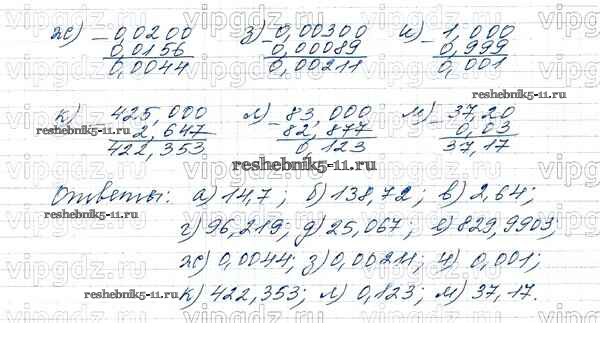 ж) – 0,0200 з) – 0,00300 и) – 1,000
0,0156 0,00089 0,999
0,0044 0,00211 0,001
к) – 425,000 л) – 83,000 м) – 37,20
2,647 82,877 0,03
422,353 0,123 37,17
reshebnik5-11.ru
reshebnik5-11.ru
Ответы: а) 14,7; б) 138,72; в) 2,64;
reshebnik5-11.ru
г) 96,219; д) 25,067; е) 829,9903;
ж) 0,0044; з) 0,00211; и) 0,001;
к) 422,353; л) 0,123; м) 37,17.
reshebnik5-11.ru
vipgdz.ru